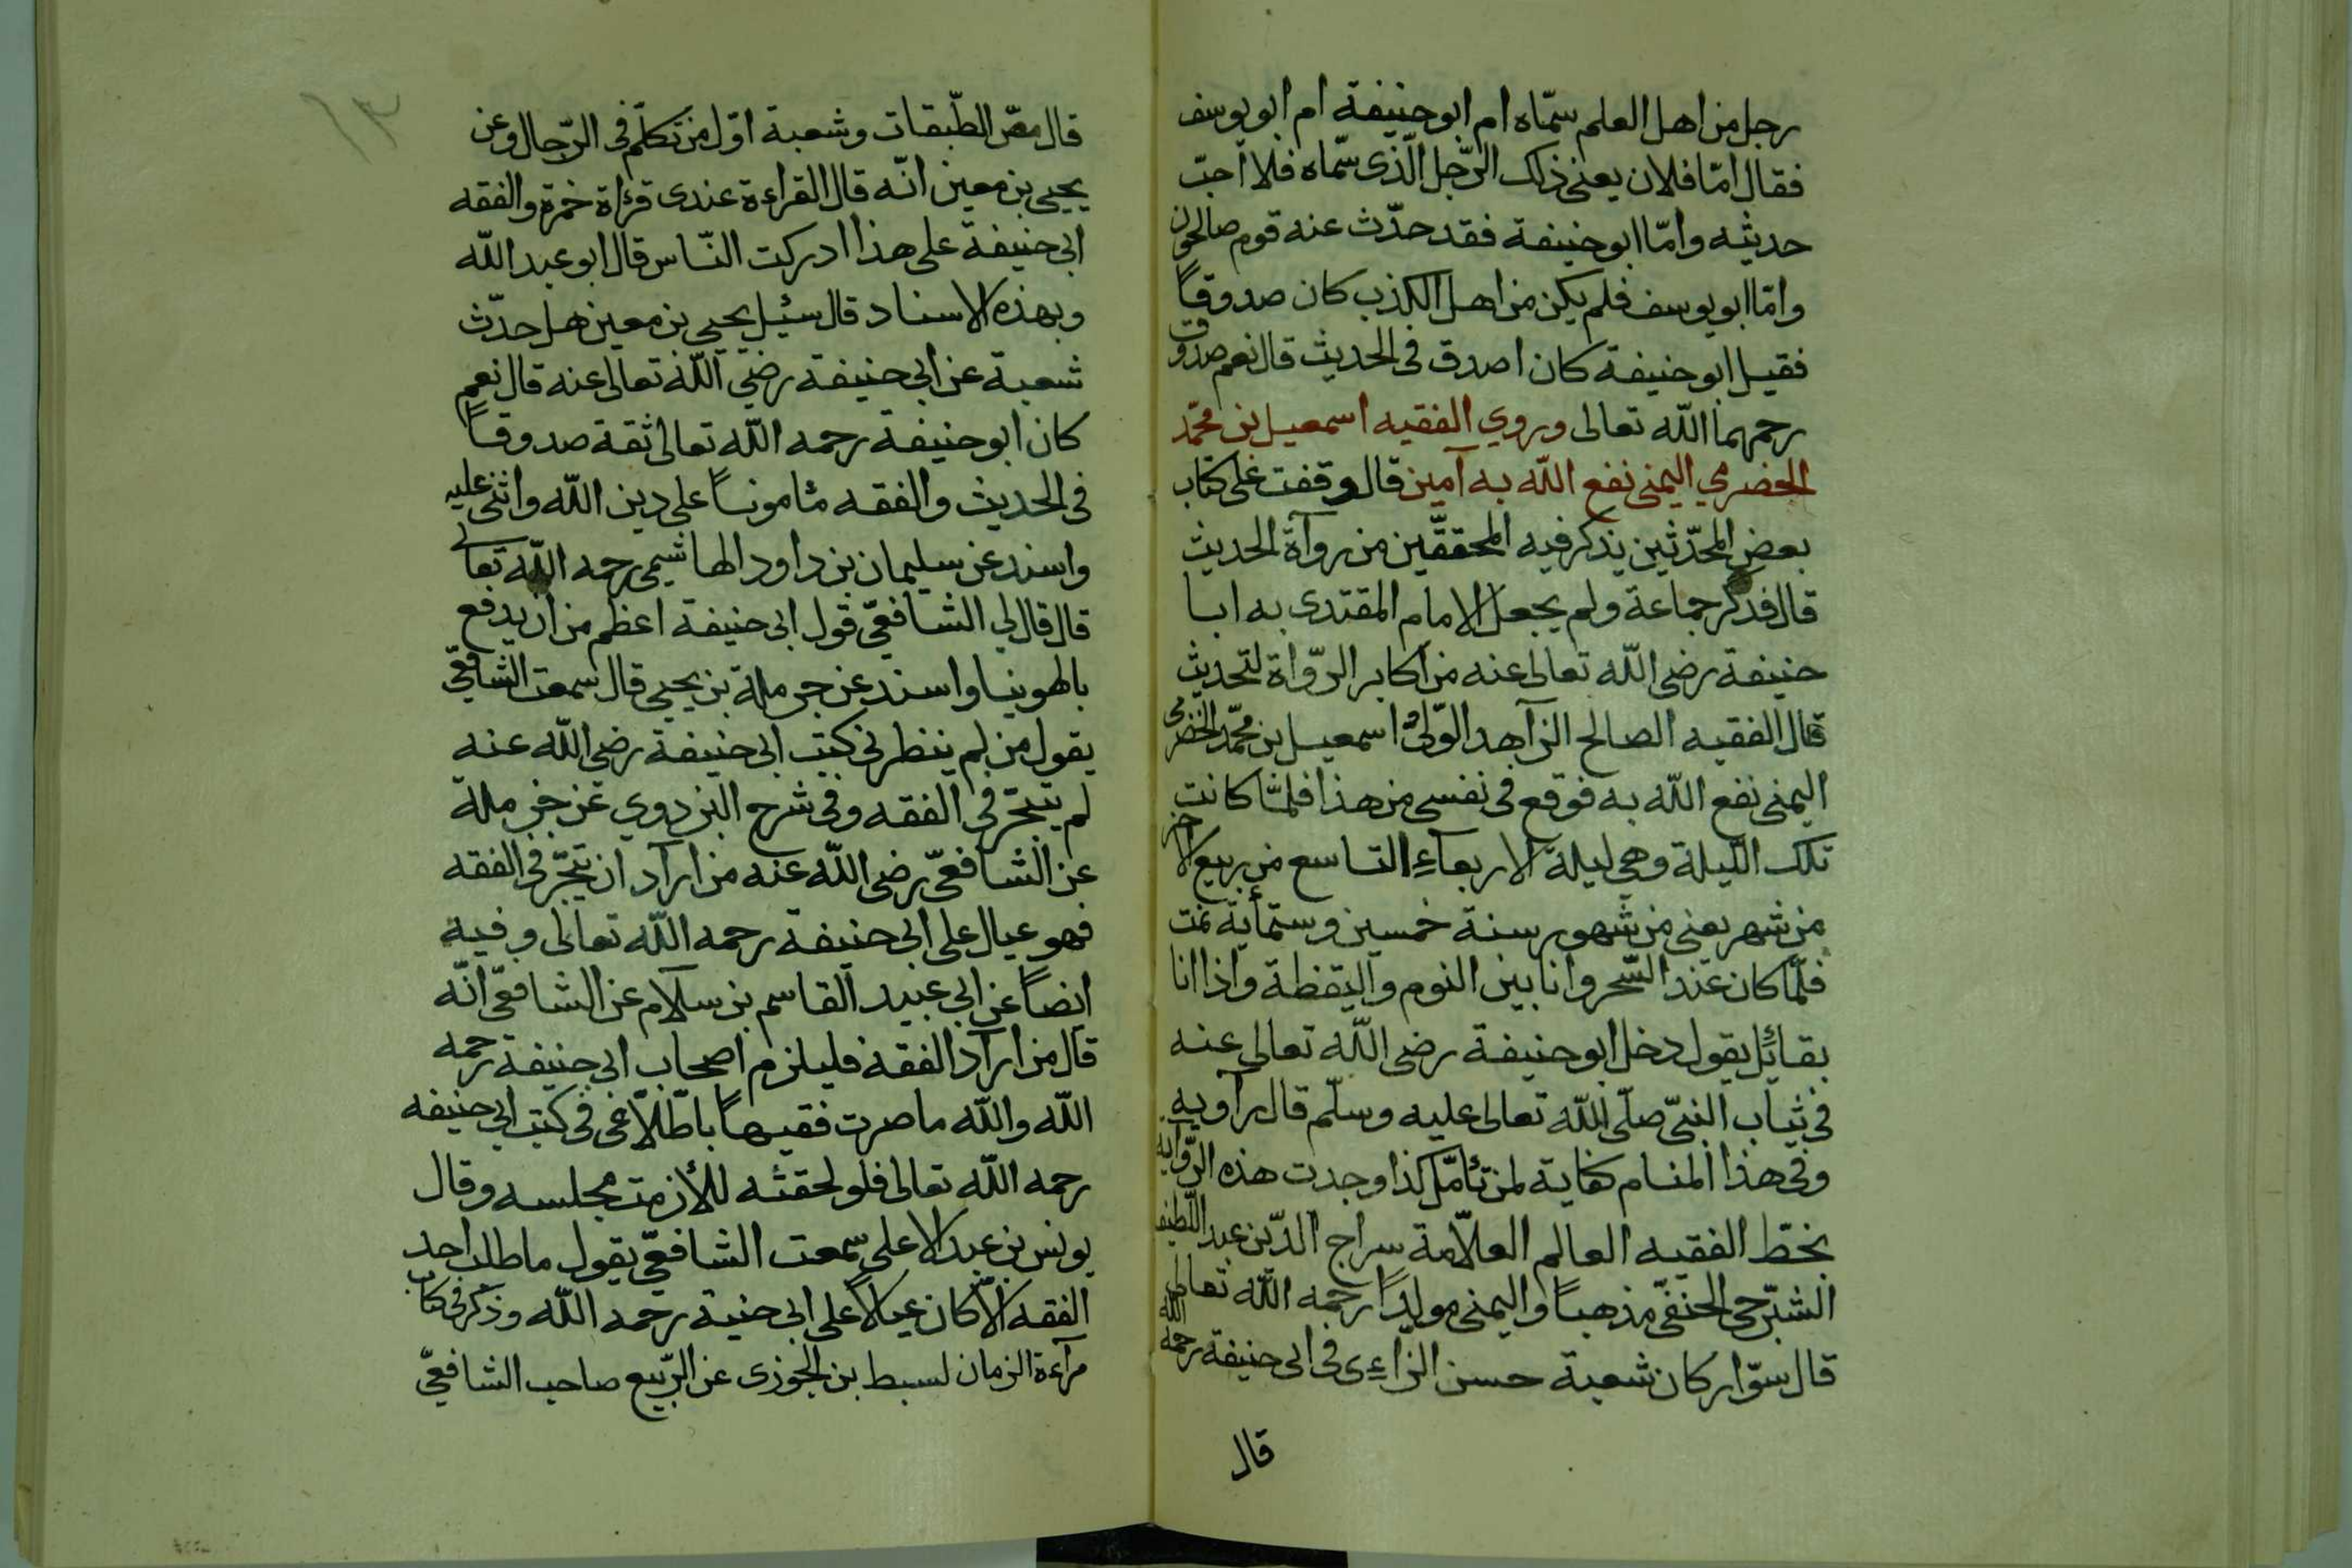 رجل من اهل العلم سمّاه ام ابو حنيفة ام ابو يوسف
فقال امّا فلان يعنى ذلك الرّجل الّذى سمّاه فلا احبّ
حديثه وامّا ابو حنيفة فقد حدّث عنه قوم صالحون
وامّا ابو يوسف فلم يكن من اهل الكذب كان صدوقاً
فقيل ابو حنيفة كان اصدق فى الحديث قال نعم صدوق
رحمهما اللّه تعالى وروي الفقيه اسمعيل بن محمّد
الحضرمي اليمنى نفع اللّه به آمين قال وقفت على كتاب
بعض المحدّثين يذكر فيه المحققّين من رواة الحديث
قال فذكر جماعة ولم يجعل الامام المقتدى به ابا
حنيفة رضى اللّه تعالى عنه من اكابر الرّواة لتحديث
قال الفقيه الصالح الزاهد الوّلىّ اسمعيل بن محمّد الحضرمى
اليمنى نفع اللّه به فوقع فى نفسى من هذا فلمّا كانت
تلك اللّيلة وهي ليلة الاربعآء التاسع من ربيع الاخر
من شهر يعنى من شهور سنة خمسين وستمأية نمت
فلمّا كان عند السّحر وانا بين النوم واليقظة واذا انا
بقائل يقول دخل ابو حنيفة رضى اللّه تعالى عنه
فى ثياب النبىّ صلّى اللّه تعالى عليه وسلّم قال راويه
وفى هذا المنام كفاية لمن تأمّل كذا وجدت هذه الرّواية
بخطّ الفقيه العالم العلاّمة سراج الدّين عبد اللّطيف
الشّرجى الحنفىّ مذهباً واليمنى مولداً رحمه اللّه تعالى
قال سوّار كان شعبة حسن الراءى فى ابى حنيفة رحمه اللّه
قال
١٣
قال مصّ الطّبقات وشعبة اوّل من تكلّم فى الرّجال وعن
يحيى بن معين انّه قال القراءة عندى قرٔاة حمزة والفقه
ابى حنيفة على هذا ادركت النّاس قال ابو عبد اللّه
وبهذه الاسناد قال سئيل يحيى بن معين هل حدّث
شعبة عن ابى حنيفة رضي اللّه تعالى عنه قال نعم
كان ابو حنيفة رحمه اللّه تعالى ثقة صدوقاً
فى الحديث والفقه مٔاموناً على دين اللّه واثنى عليه
واسند عن سليمان بن داود الهاشيمى رحمه اللّه تعالى
قال قال لي الشافعىّ قول ابى حنيفة اعظم من ان يدفع
بالهوينا واسند عن حرملة بن يحيى قال سمعت الشافعىّ
يقول من لم ينظر فى كتب ابى حنيفة رضى اللّه عنه
لم يتبحّر فى الفقه وفى شرح البزدوي عن حرملة
عن الشافعىّ رضى اللّه عنه من اراد ان يتبحّر فى الفقه
فهو عيال على ابى حنيفة رحمه اللّه تعالى وفيه
ايضاً عن ابى عبيد القاسم بن سلام عن الشافعىّ انّه
قال من اراد الفقه فليلزم اصحاب ابى حنيفة رحمه
اللّه واللّه ما صرت فقيهاً باطّلاعى فى كتب ابى حنيفه
رحمه اللّه تعالى فلو لحقته للأزمت مجلسه وقال
يونس بن عبد الاعلى سمعت الشافعىّ يقول ما طلب احد
الفقه الاّ كان عيالاً على ابى حنيفة رحمه اللّه وذكر فى كتاب
مرآءة الزمان لسبط بن الجوزى عن الرّبيع صاحب الشافعىّ